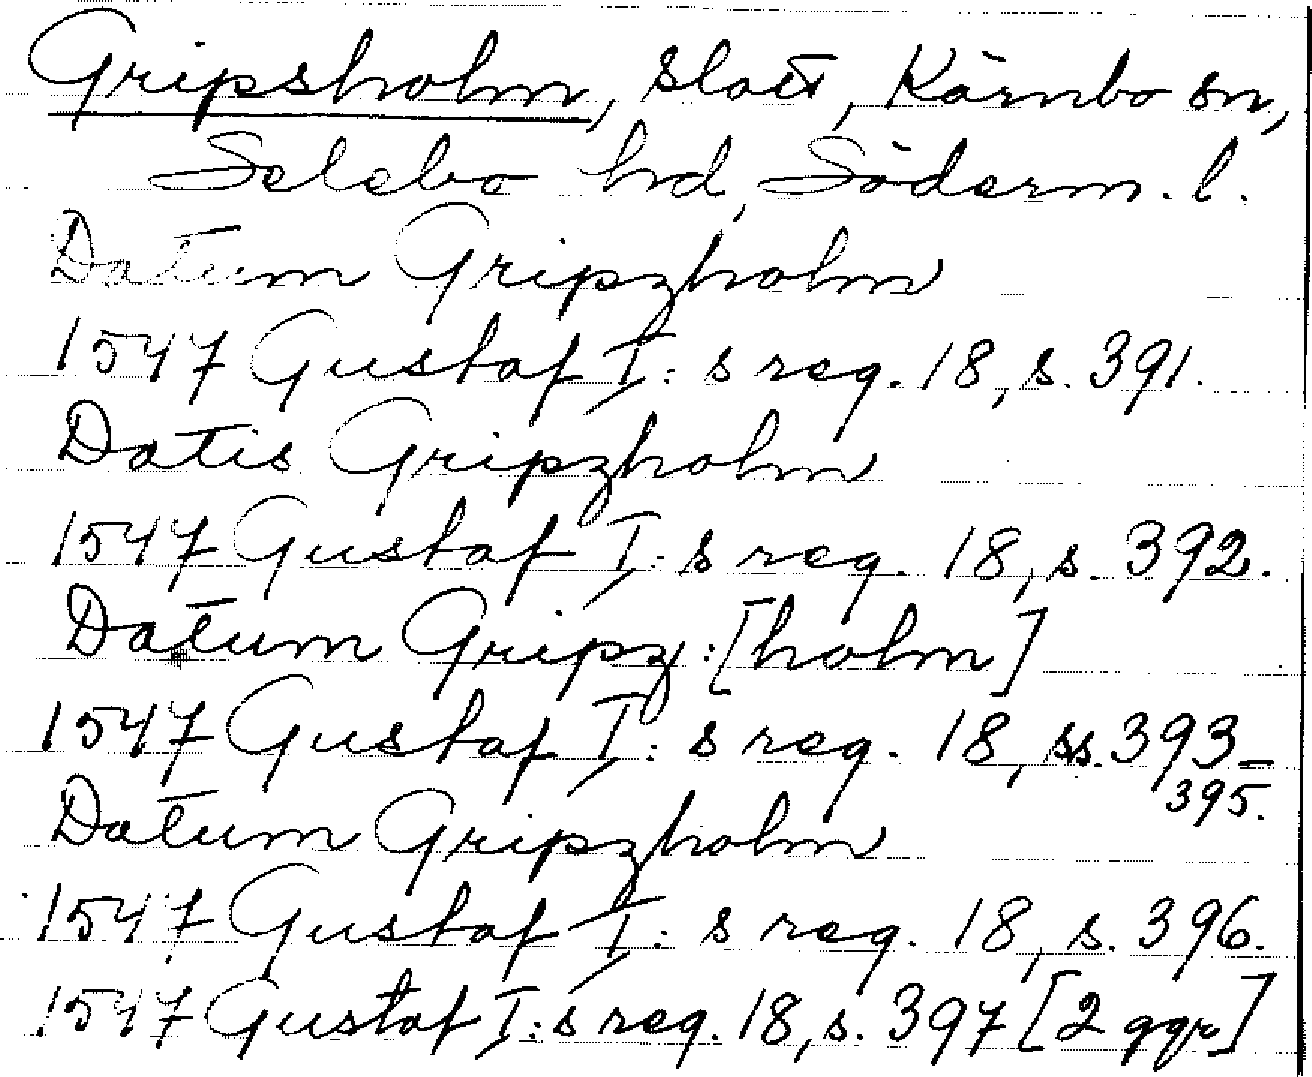 Gripsholm, slott, Kärnbo sn,
Selebo hd, Söderm. l.
Datum Gripzholm
1547 Gustaf I: s reg. 18, s. 391.
Datis Gripzholm
1547 Gustaf I: s reg. 18, s. 392.
Datum Gripz:[holm]
1547 Gustaf I: s reg. 18, ss. 393-
395.
Datum Gripzholm
1547 Gustaf I: s reg. 18, s. 396.
1547 Gustaf I: s reg. 18, s. 397 [2 ggr]